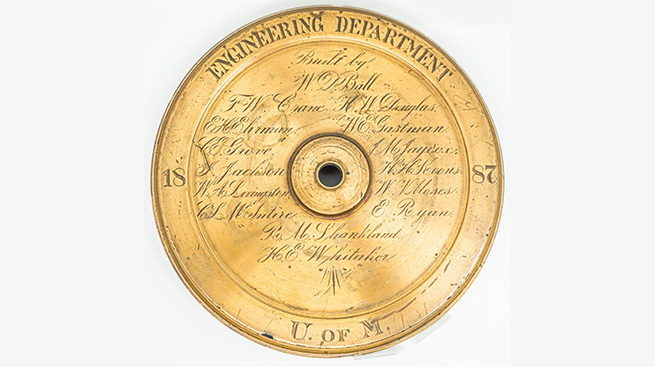 ENGINEERING DEPARTMENT
Built by
W D Ball
F. W. Crane H. W. Douglas.
E H Ehrman. W E Gastman.
C E Grove J M Jaycox.
I. Jackson H H
W A Livingston W. V. Moses.
C L McIntire E. Ryan.
R. M. Shankland.
H. E. Whitaker.
18 87
U. OF M.